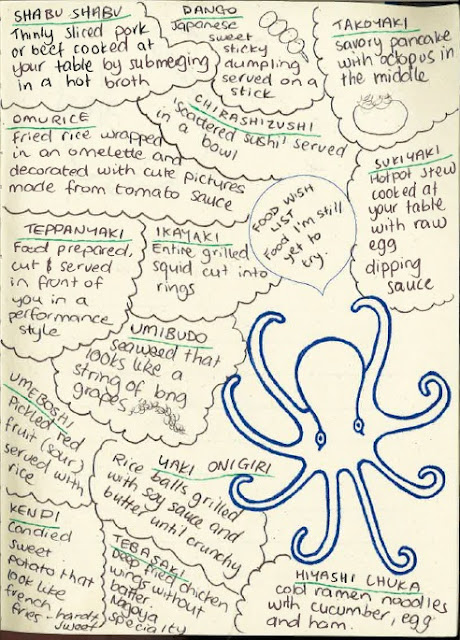 SHABU SHABU
Thinly sliced pork
or beef cooked at
your table by submerging
in a hot broth
DANGO
Japanese
sweet
sticky
dumpling
served on a
stick
TAKOYAKI
savory pancake
with octopus in
the middle
CHIRASHIZUSHI
'scattered sushi' served
in a bowl
OMURICE
Fried rice wrapped
in an omelette and
decorated with cute pictures
made from tomato sauce
SUKIYAKI
Hotpot stew
cooked at
your table
with raw
egg
dipping
sauce
FOOD WISH
LIST
Food I'm still
yet to
try.
TEPPANYAKI
Food prepared,
cut & served
in front of
you in a
performance
style
IKAYAKI
Entire grilled
squid cut into
rings
UMIBUDO
seaweed that
looks like a
string of long
grapes
UMEBOSHI
Pickled red
fruit (sour)
served with
rice
YAKI ONIGIRI
Rice balls grilled
with soy sauce and
butter until crunchy
KENPI
Candied
sweet
potato that
look like
french
fries - hard &
sweet
TEBASAKI
Deep fried chicken
wings without
batter
Nagoya
specialty
HIYASHI CHUKA
cold ramen noodles
with cucumber, egg
and ham.